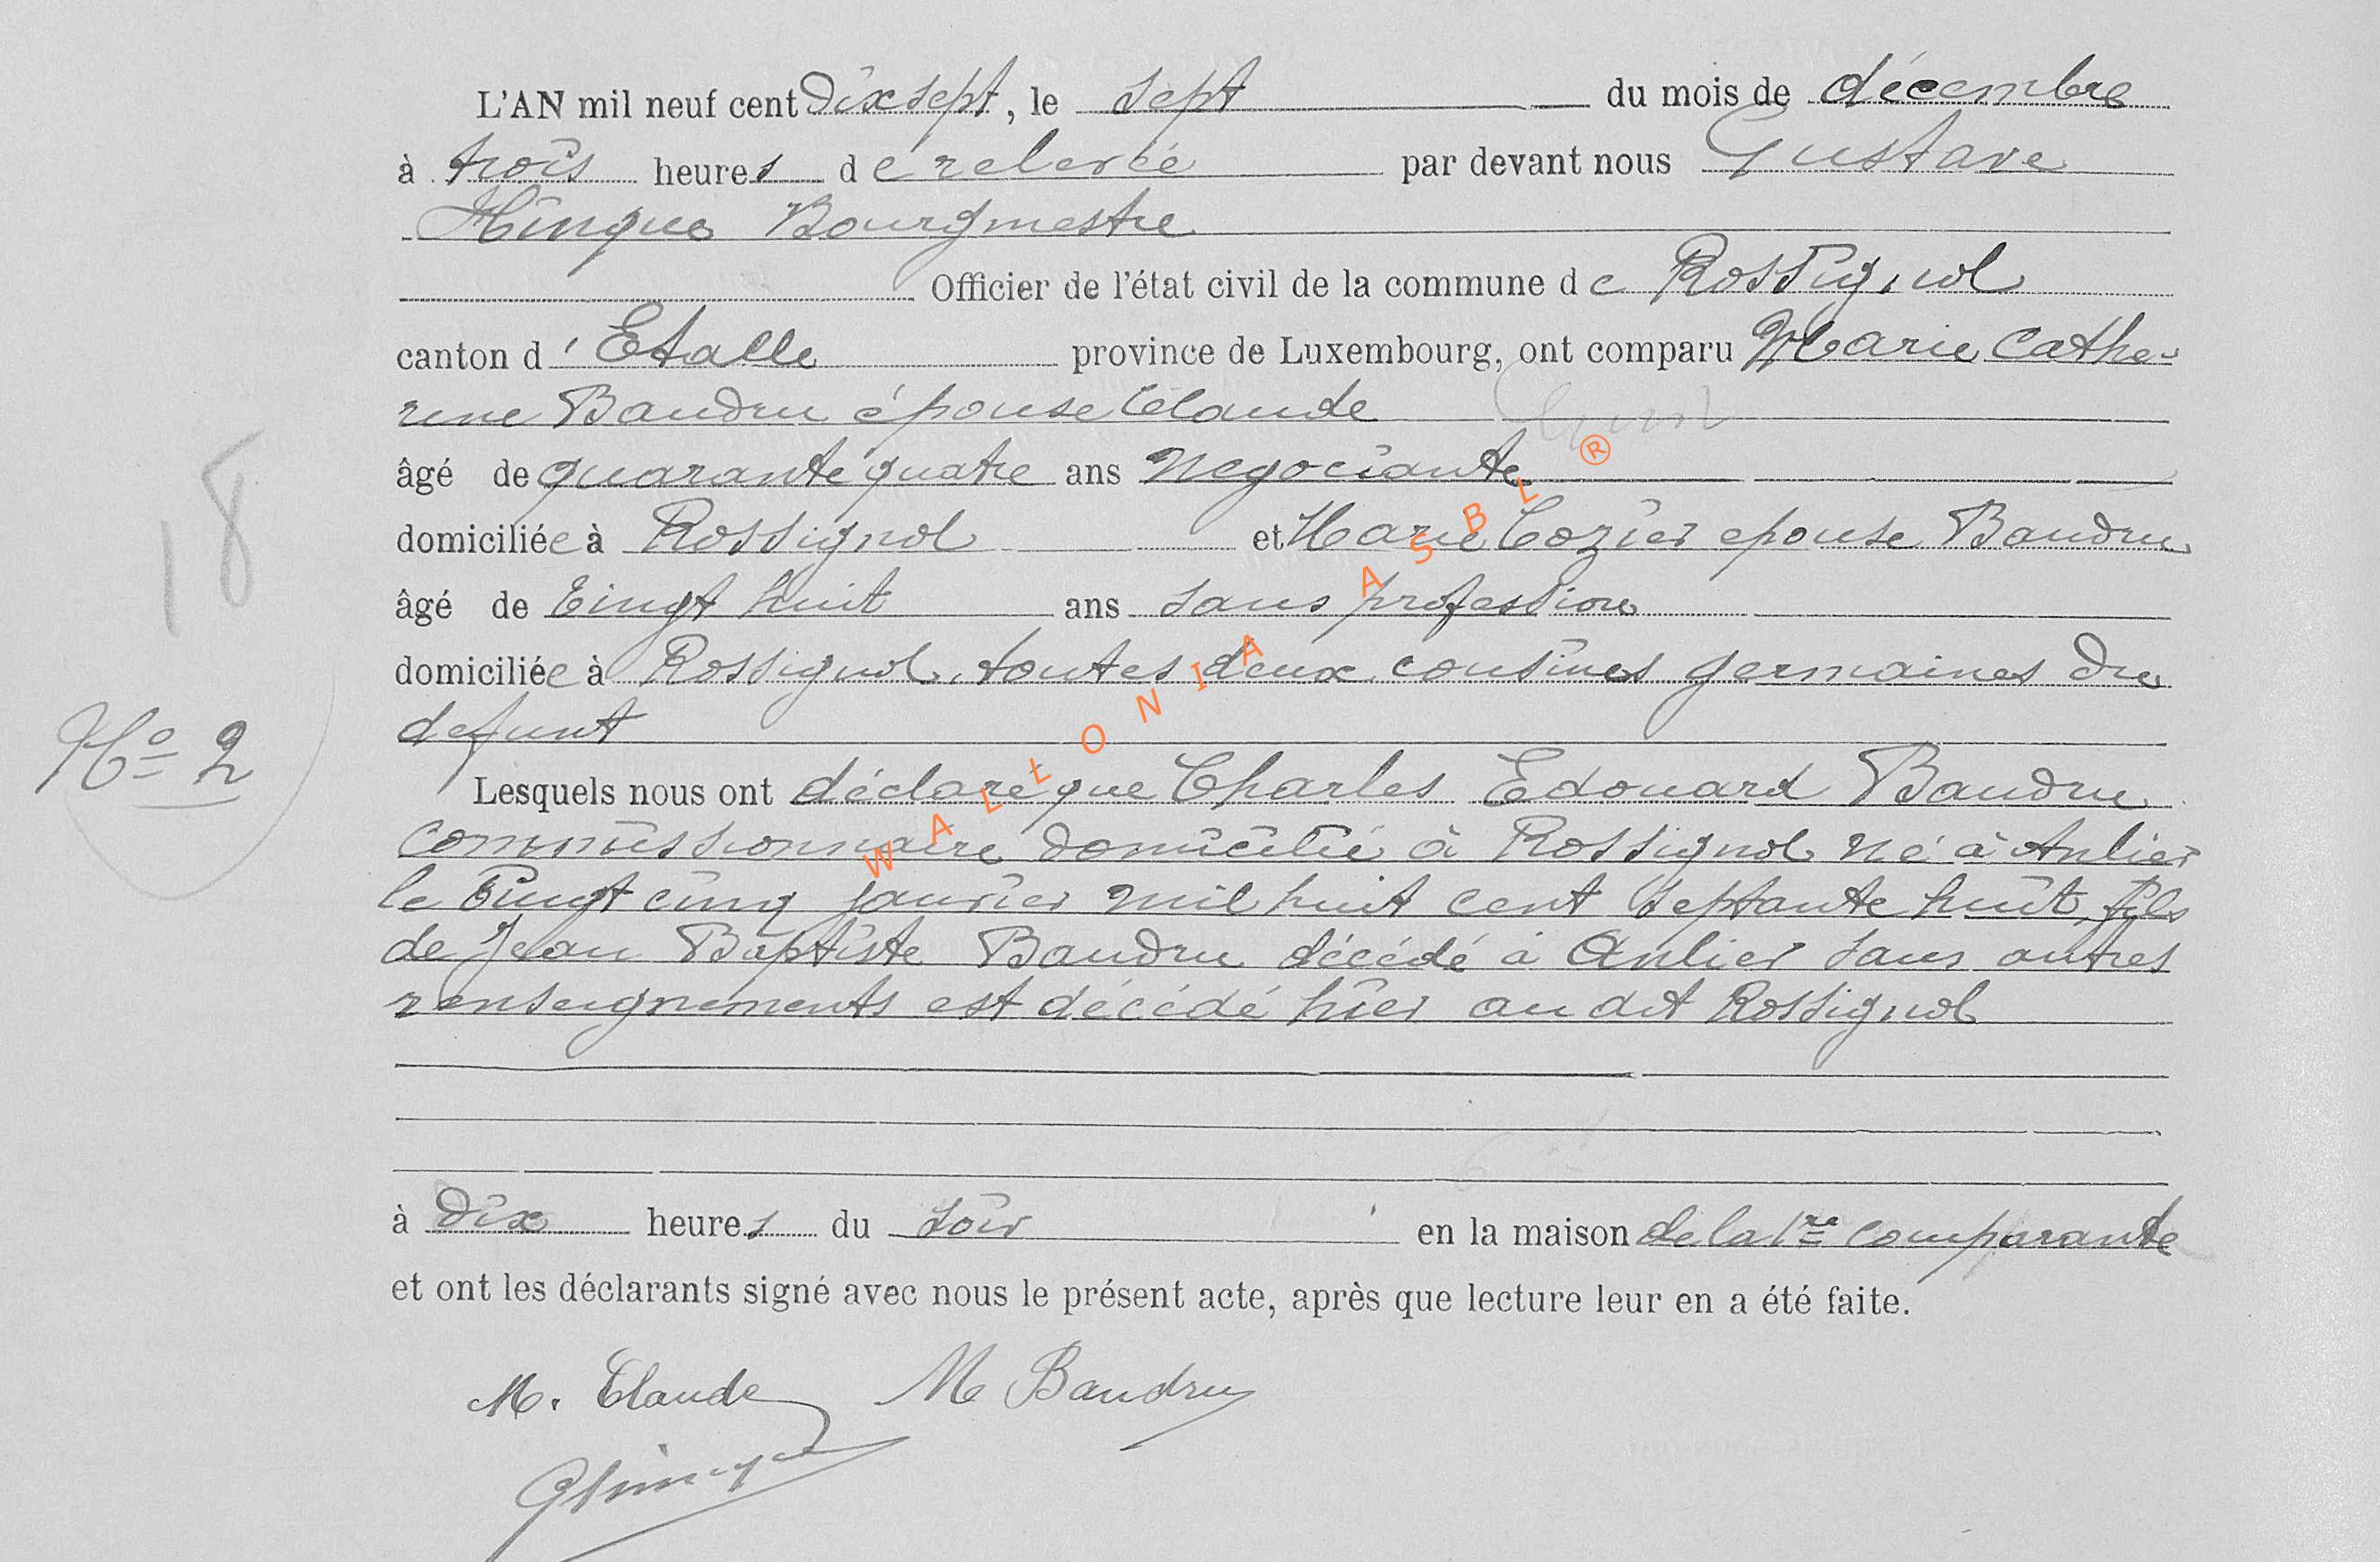 L'AN mil neuf cent Dix sept, le sept du mois de décembre
à trois heures de relevée par devant nous Gustave
Hinque Bourgmestre
Officier de l'état civil de la commune de Rossignol
canton d'Etalle province de Luxembourg, ont comparu Marie Cathe-
rine Baudru épouse Claude
âgé de quarante quatre ans négociante
domiciliée à Rossignol et Marie Cozier epouse Baudru
âgé de Vingt huit ans sans profession
18
domiciliée à Rossignol, toutes deux cousines germaines du
defunt
No 2
Lesquels nous ont déclaré que Charles Edouard Baudru
commissionnaire domicilié à Rossignol né à Anlier
le Vingt cinq janvier mil huit cent septante huit, fils
de Jean Baptiste Baudru décédé à Anlier sans autres
renseignements est décédé hier au dit Rossignol
à Dix heures du soir en la maison de la 1re comparante
et ont les déclarants signé avec nous le présent acte, après que lecture leur en a été faite.
M. Claude M Baudru
GHinque
WALLONIA ASBL ®